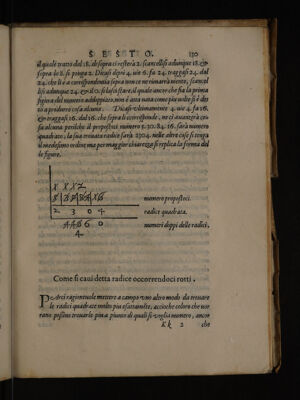 SESTO. 130
ilquale tratto dal 18. de sopra ci resterà 2. scancellisi adunque 18. &
sopra le 8. si pinga 2. Dicasi depoi 4. uie 6. fa 24. traggasi 24. dal
24. che li è a correspondentia sopra non ce ne rimarrà niente, scancel
lisi adunque 24. & il 0. si lasci stare, il quale ancor che sia la prima
figura del numero addoppiato, non è atta nata come piu uolte si è det
to a produrre cosa alcuna. Dicasi ultimamente 4. uie 4. fa 16.
& traggasi 16. dal 16. che sopra li correspõde, ne ci auanzerà co-
sa alcuna perilche il propostoci numero 5. 30. 84. 16. sarà numero
quadrato, la sua uera radice sarà 2304. nelle altre cose si tenga
il medesimo ordine, ma per maggior chiarezza si replica la forma del
le figure.
numero propostoci.
2 3 0 4 radici quadrata.
4 4 6 6 0 numeri doppi delle radici.
4
Come si caui detta radice occorrendoci rotti.
PArci ragioneuole mettere a campo uno altro modo da trouare
le radici quadrate molto piu esattamẽte, accioche coloro che uor
rano possino trouarle piu a punto di quali si uoglia numero, ancor
Kk 2 che